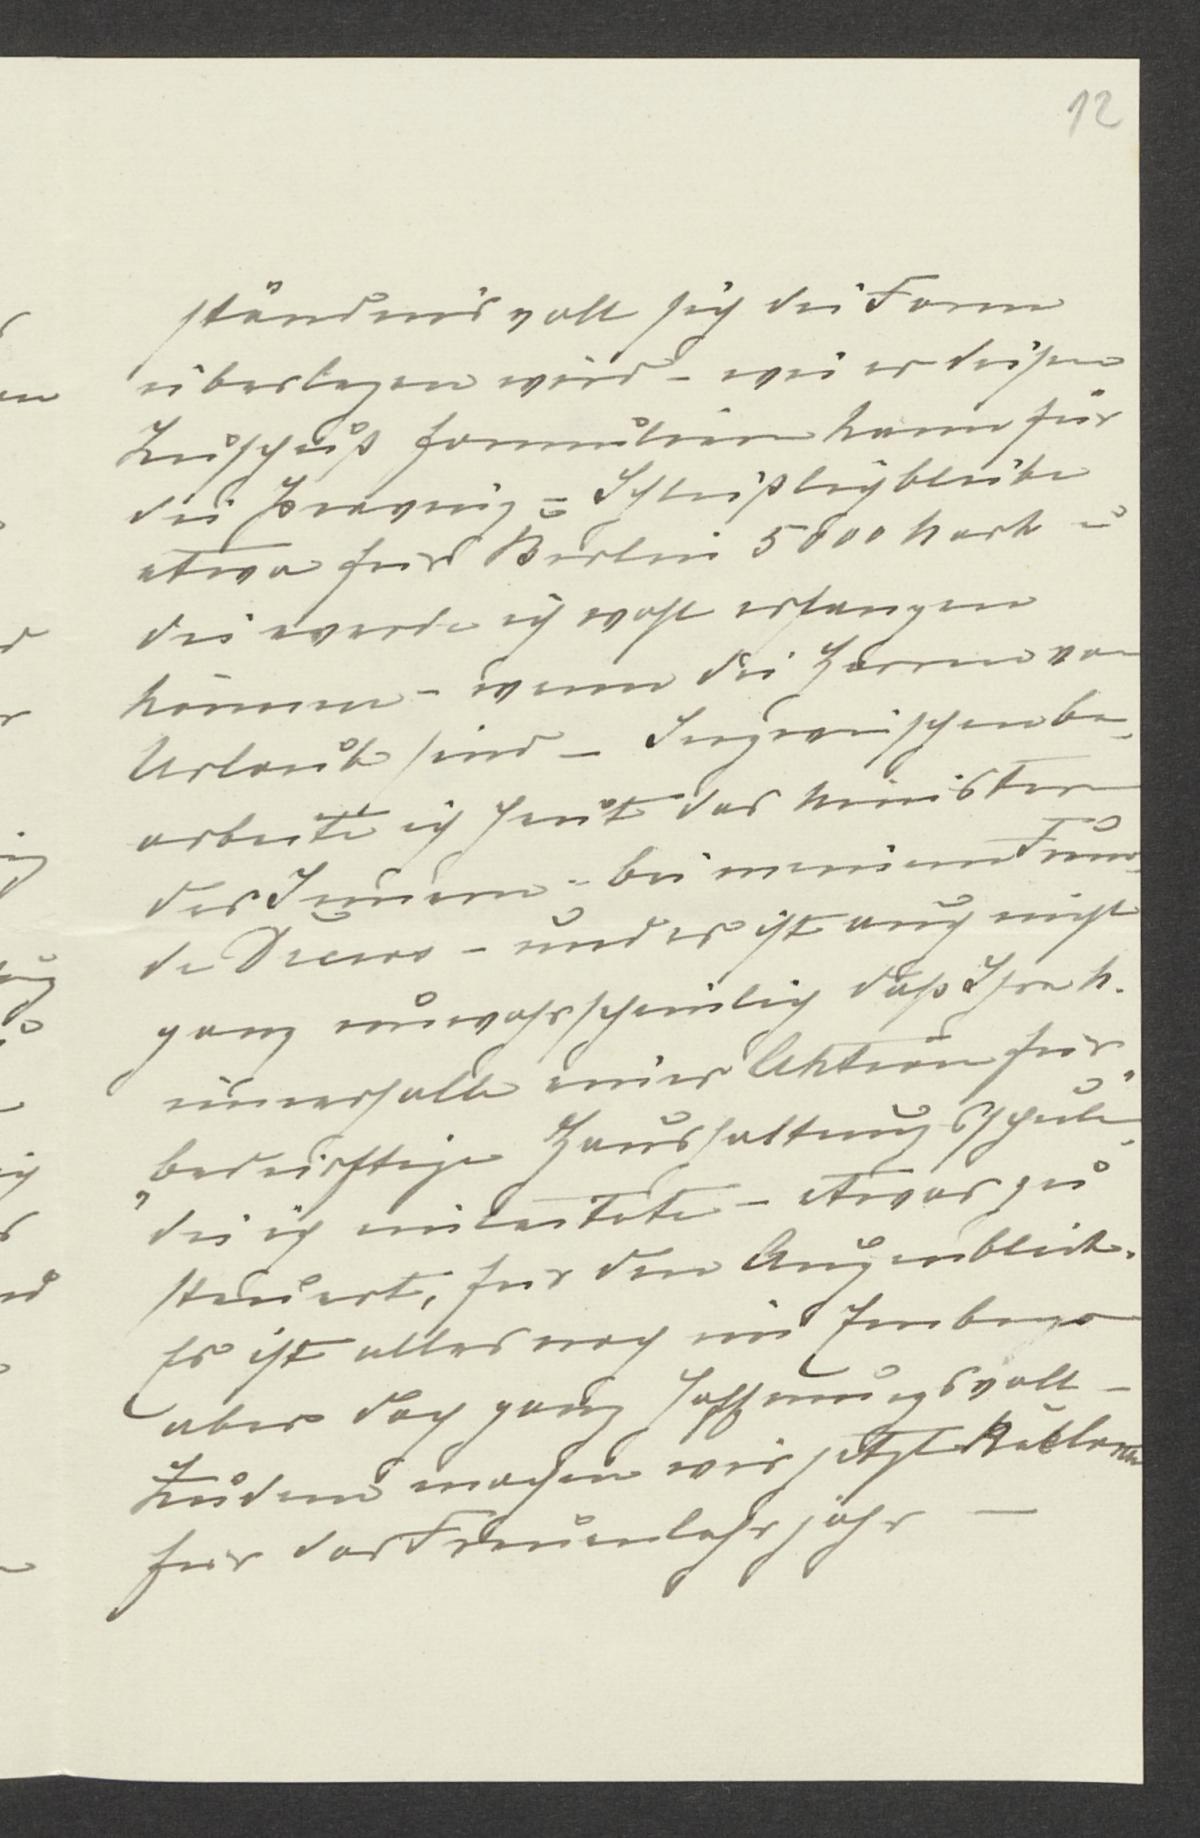 12
ständnisvoll sich die Form
überlegen wird – wie er diesen
Zuschuß formulieren kann für
die Provinz – Schließlich bliebe
etwa für Berlin 5000 Mark u
die werde ich wohl erlangen
können – wenn die Herren vom
Urlaub sind – Inzwischen be-
arbeite ich heut das Ministerium
des Innern – bei meinem Freun-
de Drews – und es ist auch nicht
ganz unwahrscheinlich daß Ihre K.
innerhalb einer Aktion für
bedürftige Haushaltungsschule"
"die ich einleitete – etwas zu
steuert, für den Augenblick.
Es ist alles noch im Embryo
aber doch ganz hoffnungsvoll –
Zudem machen wir jetzt Reklame
für das Frauenlehrjahr –